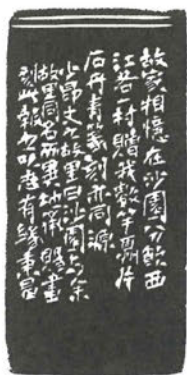 故家相憶在沙園分飲西
江若一村贈我數竿寫片
石丹青篆刻亦同源
少昂丈之故里曰沙園与余
故里同名而異地蒙賜畫
刻此報之以志有緣秉昌